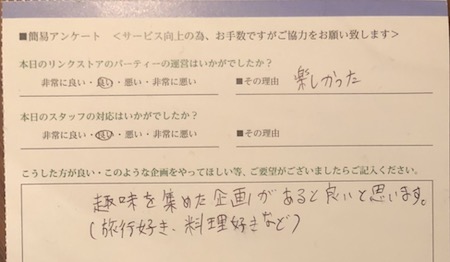 ■簡易アンケート <サービス向上の為、お手数ですがご協力をお願い致します>
本日のリンクストアのパーティーの運営はいかがでしたか?
非常に良い・良い・悪い・非常に悪い ■その理由 楽しかった
本日のスタッフの対応はいかがでしたか?
非常に良い・良い・悪い・非常に悪い ■その理由
こうした方が良い・このような企画をやってほしい等、ご要望がございましたらご記入ください。
趣味を集めた企画があると良いと思います。
(旅行好き、料理好きなど)